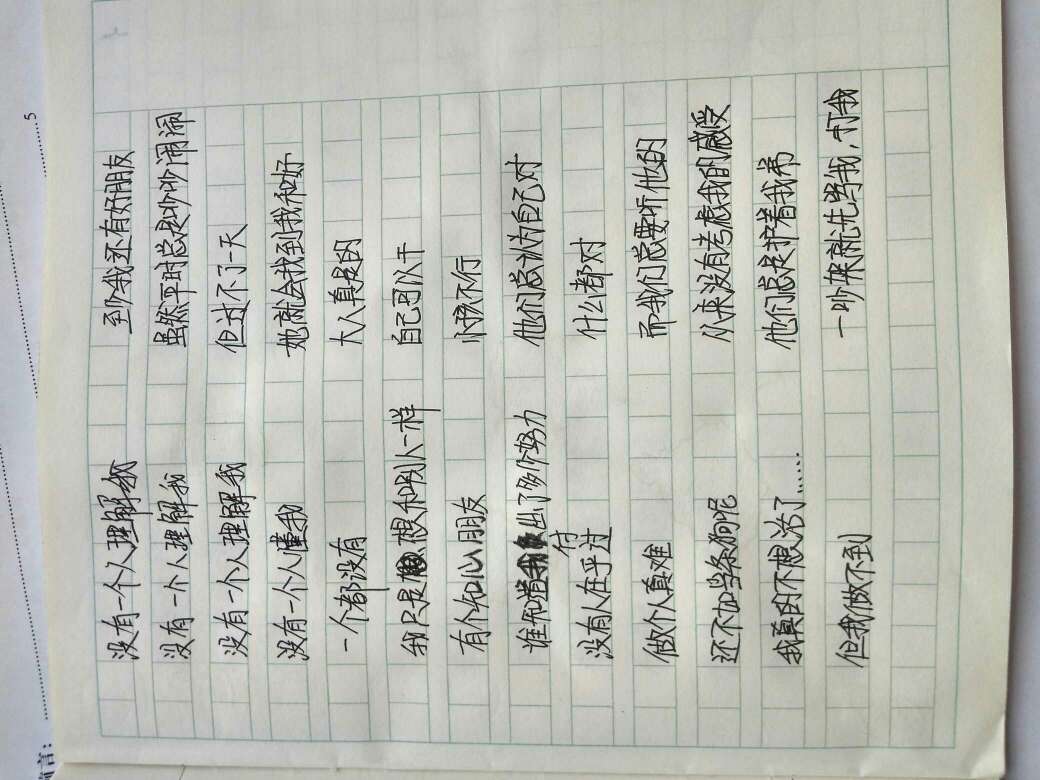 没有一个人理解我
没有一个人理解我
没有一个人理解我
没有一个人懂我
一个都没有
我只是想和别人一样
有个知心朋友
谁知道我付出了多少努力
没有人在乎过
做个人真难
还不如当条狗呢
我真的不想活了……
但我做不到
到少我还有好朋友
虽然平时总是吵吵闹闹
但过不了一天
她就会找到我和好
大人真是的
自己可以干
小孩不行
他们总认为自己对
什么都对
而我们总要听他的
从来没有考虑我的感受
他们总是护着我弟
一吵架就先骂我，打我
5